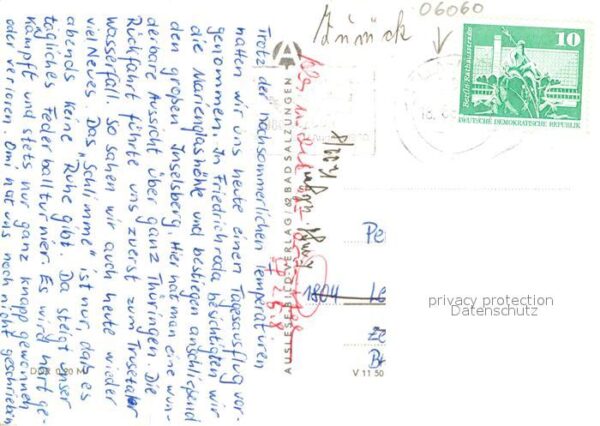 Trotz der hochsommerlichen Temperaturen
hatten wir uns heute einen Tagesausflug vor-
genommen. In Friedrichroda besichtigten wir
die Marienglashöhle und bestiegen anschließend
den großen Inselsberg. Hier hat man eine wun-
derbare Aussicht über ganz Thüringen. Die
Rückfahrt führte uns zuerst zum Trusetaler
Wasserfall. So sahen wir auch heute wieder
viel Neues. Das „Schlimme" ist nur, daß es
abends keine „Ruhe" gibt. Da steigt unser
tägliches Federballturnier. Es wird hart ge-
kämpft und stets nur ganz knapp gewonnen
oder verloren. Omi hat uns noch nicht geschrieben
DDR 0,20 M
AUSLESE-BILD-VERLAG/62 BAD SALZUNGEN
V 11 50
06060
Zurück
10
Berlin, Rathausstraße
DEUTSCHE DEMOKRATISCHE REPUBLIK
1804
privacy protection
Datenschutz